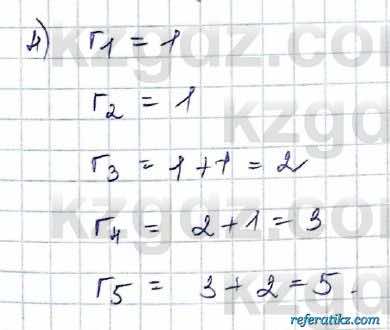 4) r₁ = 1
r₂ = 1
r₃ = 1 + 1 = 2
r₄ = 2 + 1 = 3
r₅ = 3 + 2 = 5.
kzgdz.com
referatikz.com